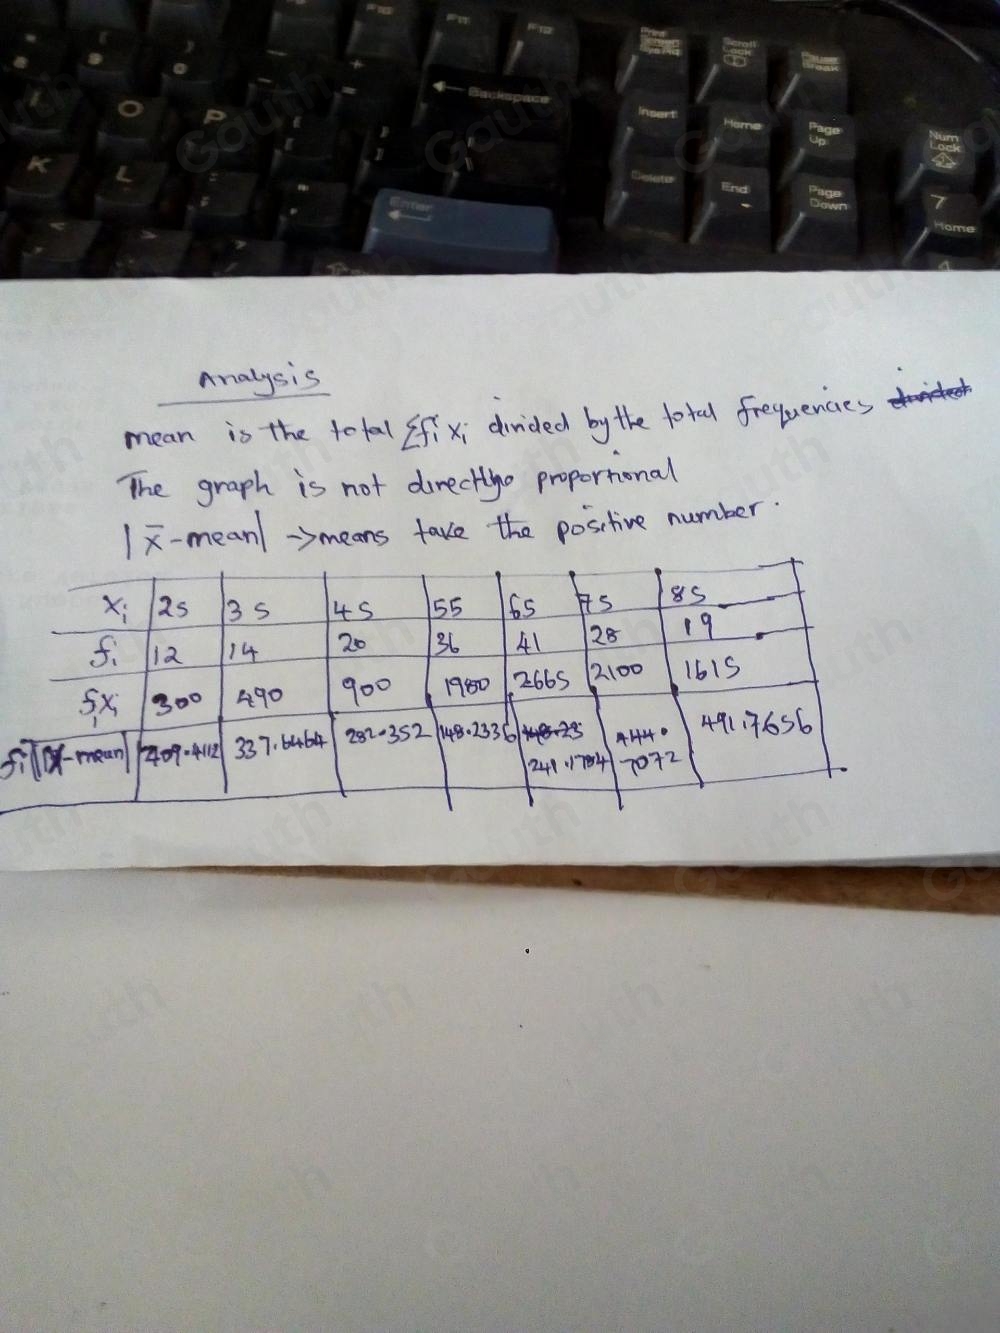 F10
F11
F12
Print
Screen
Scroll
Lock
Pause
Break
8
9
0
-
+
=
Backspace
O
P
Insert
Home
Page
Up
Num
Lock
K
L
Enter
Delete
End
Page
Down
7
Home
Gauth
Analysis
mean is the total Σfi xi divided by the total frequencies
The graph is not directly proportional
|x̄-mean| -> means take the positive number.
xi 25 35 45 55 65 75 85
fi 12 14 20 36 41 28 19
fixi 300 490 900 1980 2665 2100 1615
fi|x-mean| 409.4112 337.6464 282.352 148.2336 241.1784 444.7072 491.7656